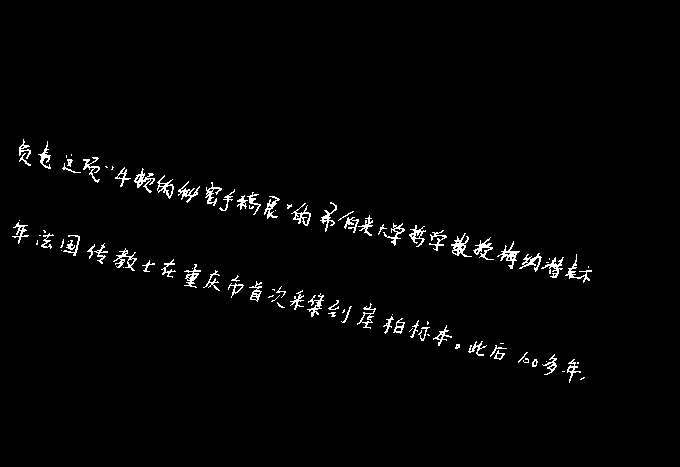 负责这项“牛顿的秘密手稿展”的希伯来大学哲学教授梅纳潘表示
年法国传教士在重庆市首次采集到崖柏标本。此后100多年,